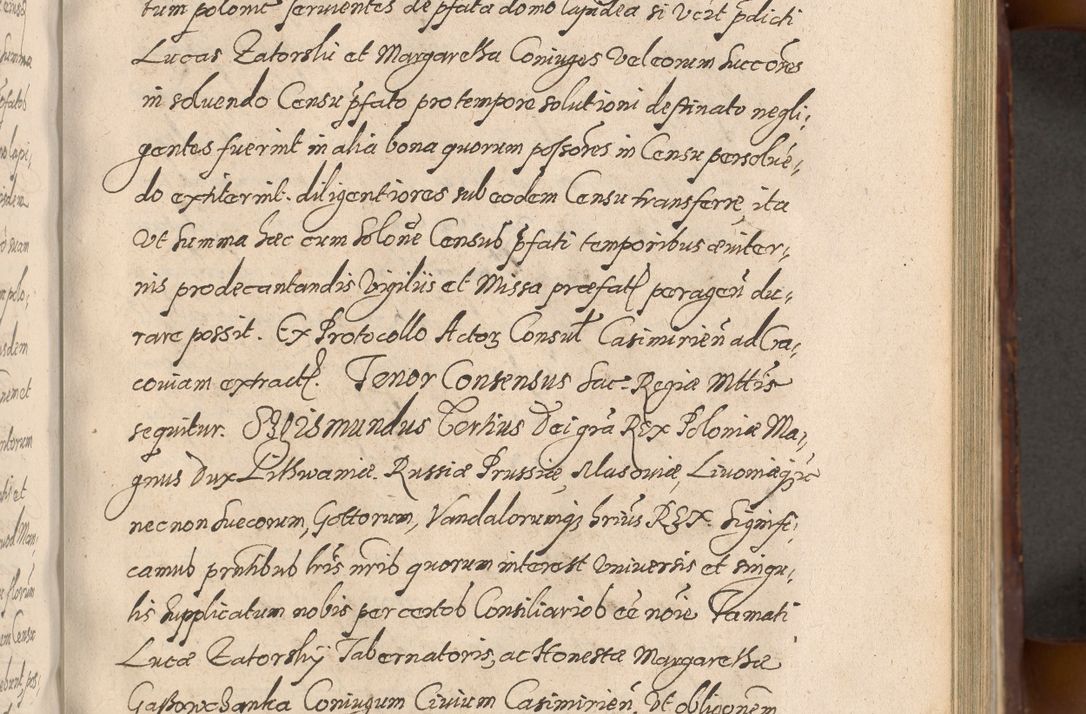 tum polonic servientes de pfata domo lapidea si Vert pdicti
Lucas Zatorski et Margaretha Coniuges Vel eorum succores
in soluendo Censu pfato pro tempore solutioni destinato negli,
gentes fuerint in alia bona quorum possores in Censu persolue,
do extiterint. diligentiores sub eodem Censu transferre, ita
Vt summa hæc cum solone Censub pfati temporibus æuiter,
nis prodecantandis Vigiliis et Missa præfat peragen du,
rare possit. Ex Protocollo Actoꝝ Consul Casimirien ad Cra,
couiam extract. Tenor Consensus Sac. Regiæ Mttis
sequitur. Sigismundus Tertius Dei gra Rex Poloniæ Ma,
gnus Dux Lithwaniæ. Russiæ Prussiæ, Masouiæ, Liuoniæq
nec non Suecorum, Gottorum, Vandalorumq hrius REX. Signifi,
camus pntibus lris nris quorum interest Vniuersis et singu,
lis supplicatum nobis per certos Consiliarios ee noie Famati
Lucæ Zatorskÿ Tabernatoris, ac Honestæ Margarethæ
Coniugum Ciuium Casimirien, Vt obligonem